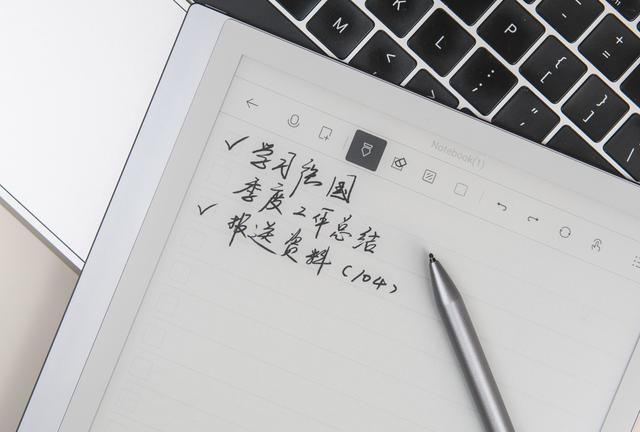 M
K
L
P
<
:
;
{
[
}
]
"
'
+
=
-
Notebook(1)
✓学习强国
季度工作总结
✓报送资料(104)